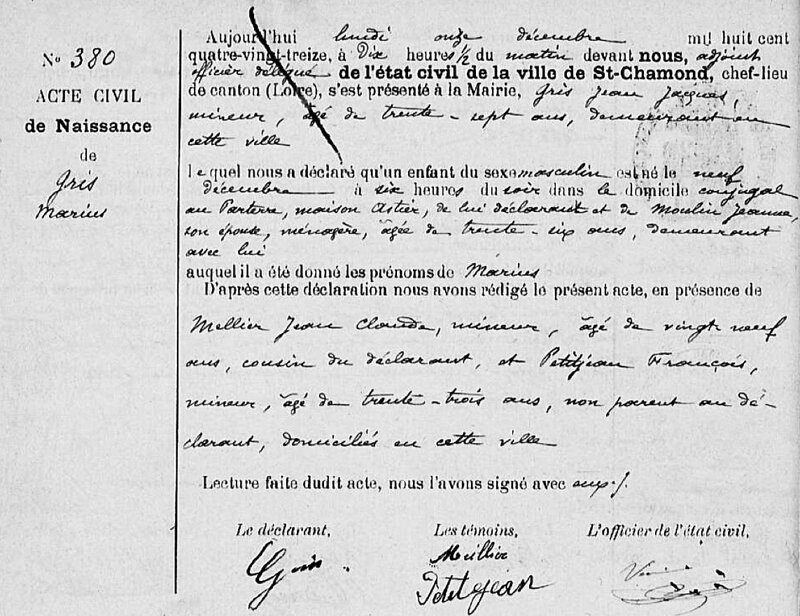 N° 380
ACTE CIVIL
de Naissance
de
Gris
Marius
Aujourd'hui lundi onze décembre mil huit cent
quatre-vingt-treize, à Dix heures ½ du matin devant nous, adjoint
officier délégué de l'état civil de la ville de St-Chamond, chef-lieu
de canton (Loire), s'est présenté à la Mairie, Gris Jean Jacques,
mineur, âgé de trente-sept ans, demeurant en
cette ville
lequel nous a déclaré qu'un enfant du sexe masculin est né le neuf
décembre à six heures du soir dans le domicile conjugal
au Parterre, maison Astier, de lui déclarant et de Moulin Jeanne,
son épouse, ménagère, âgée de trente-six ans, demeurant
avec lui
auquel il a été donné les prénoms de Marius
D'après cette déclaration nous avons rédigé le présent acte, en présence de
Mellier Jean Claude, mineur, âgé de vingt neuf
ans, cousin du déclarant, et Petitjean François,
mineur, âgé de trente-trois ans, non parent au dé-
clarant, domiciliés en cette ville
Lecture faite dudit acte, nous l'avons signé avec eux.
Le déclarant, Les témoins, L'officier de l'état civil,
Gris Meillier
Petitjean